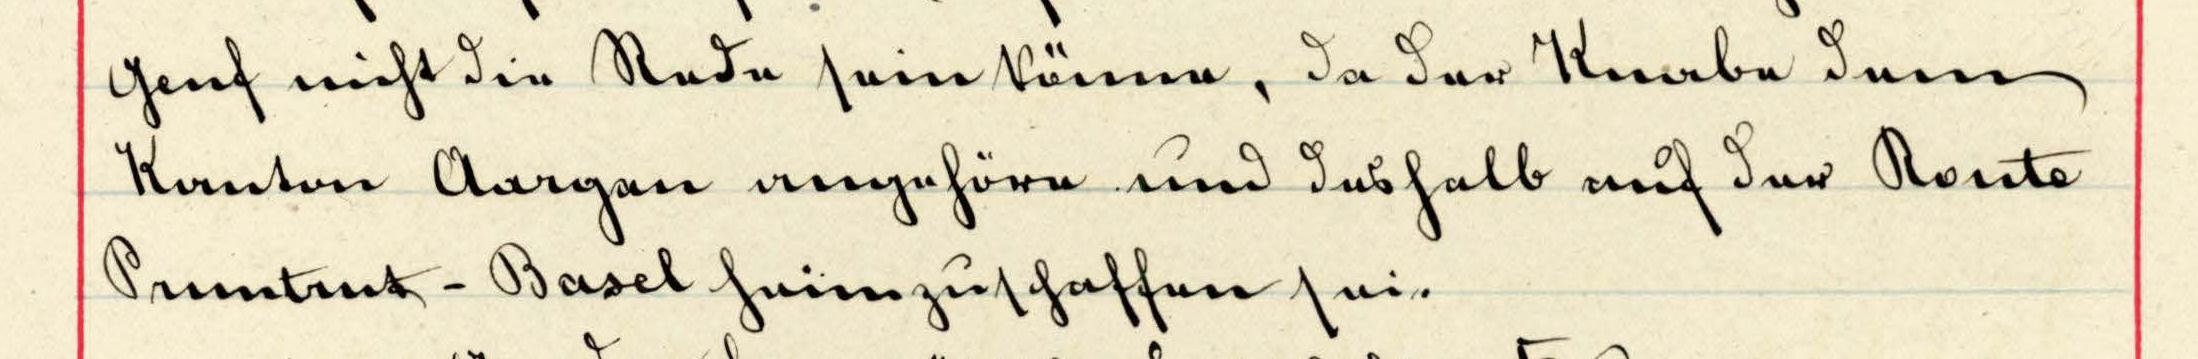 Genf nicht die Rede sein könne, da der Knabe dem
Kanton Aargau angehöre und deshalb auf der Route
Pruntrut - Basel heimzuschaffen sei.